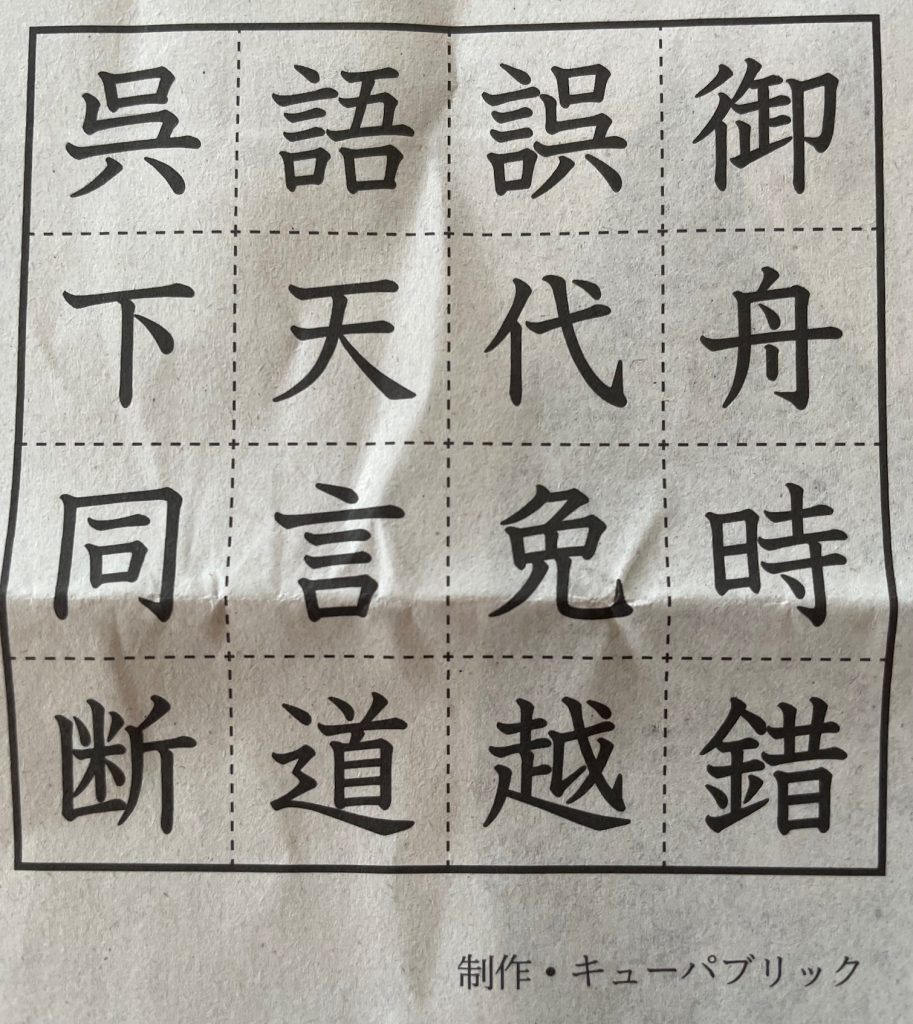 呉 語 誤 御
下 天 代 舟
同 言 免 時
断 道 越 錯
制作・キューパブリック